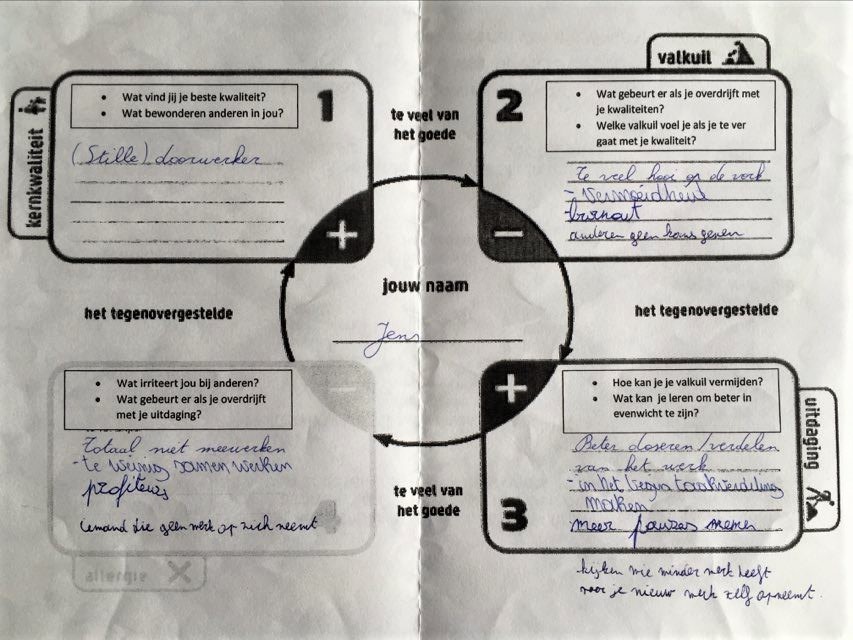 kernkwaliteit
1
• Wat vind jij je beste kwaliteit?
• Wat bewonderen anderen in jou?
(Stille) doorwerker
+
te veel van
het goede
valkuil
2
• Wat gebeurt er als je overdrijft met
je kwaliteiten?
• Welke valkuil voel je als je te ver
gaat met je kwaliteit?
Te veel hooi op de vork
- Vermoeidheid
- burnout
anderen geen kans geven
−
het tegenovergestelde
jouw naam
Jens
het tegenovergestelde
• Wat irriteert jou bij anderen?
• Wat gebeurt er als je overdrijft
met je uitdaging?
Totaal niet meewerken
- te weinig samen werken
profiteurs
iemand die geen werk op zich neemt
−
4
allergie
te veel van
het goede
+
3
uitdaging
• Hoe kan je je valkuil vermijden?
• Wat kan je leren om beter in
evenwicht te zijn?
Beter doseren/verdelen
van het werk
- in het begin taakverdeling
maken
meer pauzes nemen
kijken wie minder werk heeft
voor je nieuw werk zelf opneemt.